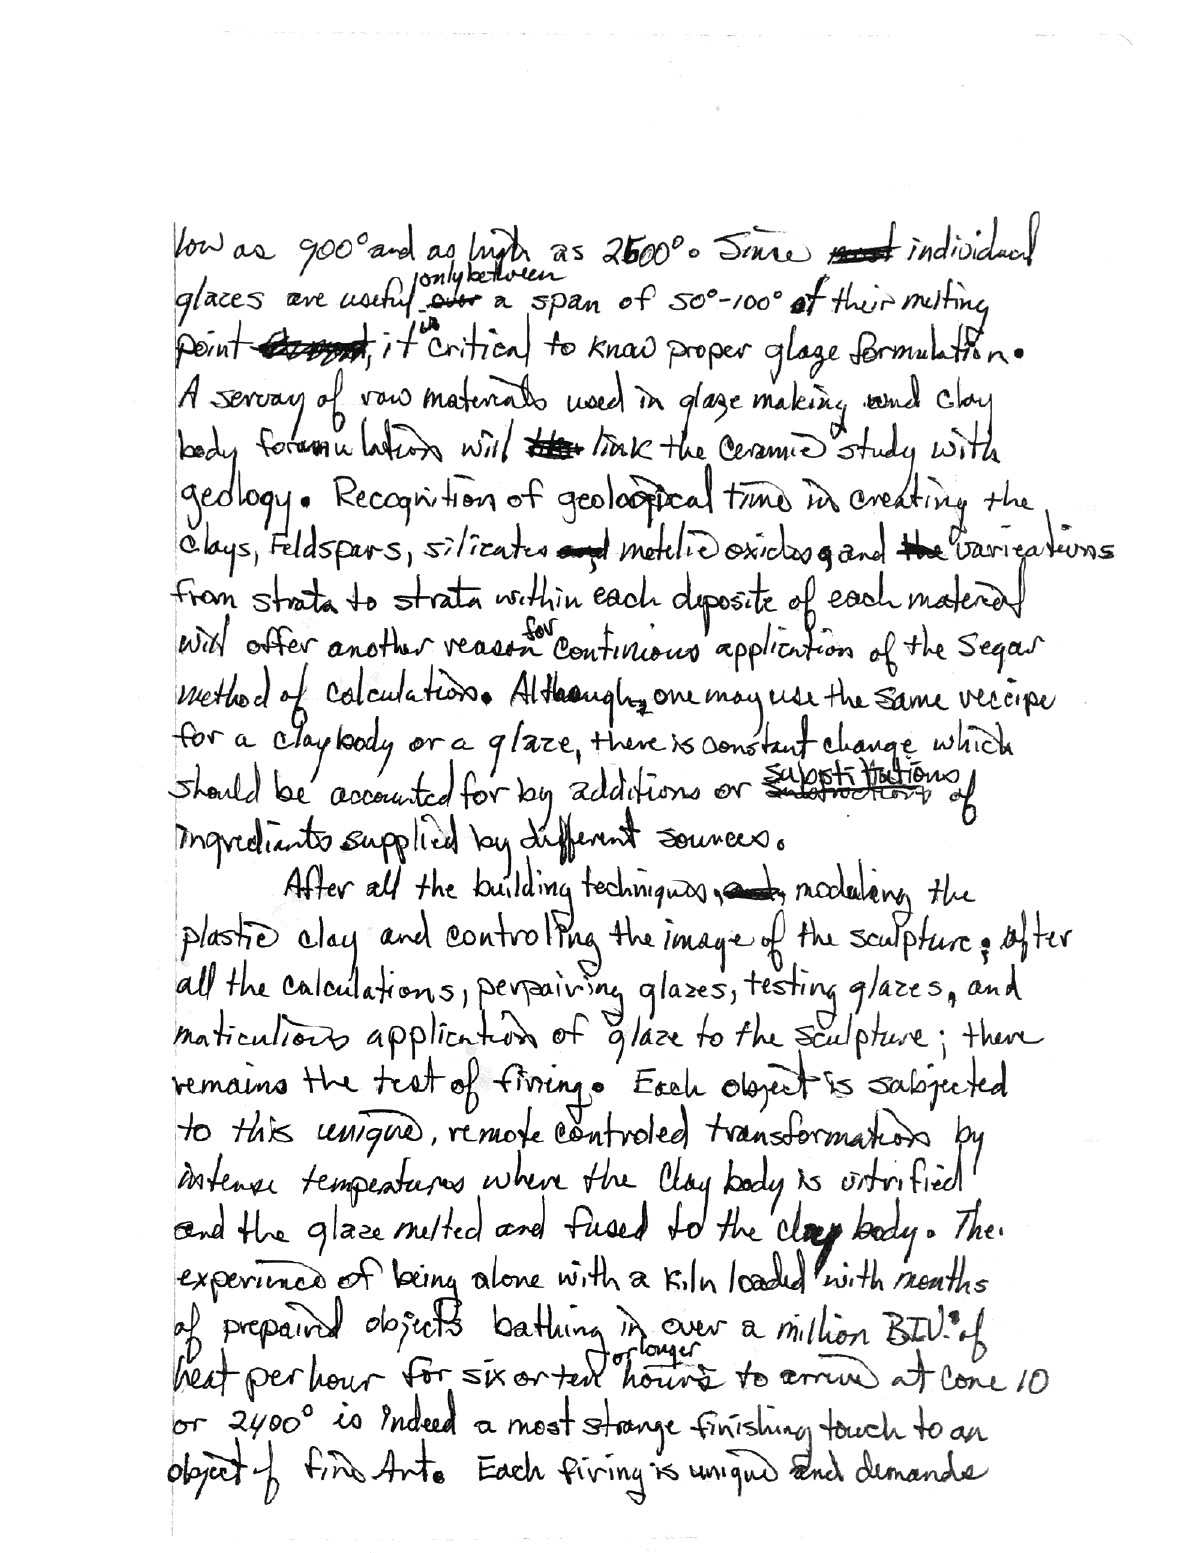 low as 900° and as high as 2500°. Since individual
glazes are useful only between a span of 50°-100° of their melting
point, it is critical to know proper glaze formulation.
A servay of raw materials used in glaze making and clay
body formulation will link the ceramic study with
geology. Recognition of geological time in creating the
clays, Feldspars, silicates, metelic oxides, and varieations
from strata to strata within each deposite of each material
will offer another reason for continious application of the Segar
method of calculation. Although, one may use the same reccipe
for a clay body or a glaze, there is constant change which
should be accounted for by additions or substitutions of
ingrediants supplied by different sources.
After all the building techniques, modeling the
plastic clay and controling the image of the sculpture; after
all the calculations, perpairing glazes, testing glazes, and
maticulious application of glaze to the sculpture; there
remains the test of firing. Each object is subjected
to this unique, remote controled transformation by
intense temperatures where the clay body is vitrified
and the glaze melted and fused to the clay body. The
experience of being alone with a kiln loaded with months
of prepaired objects bathing in over a million B.T.U.s of
heat per hour for six or ten or longer hours to arrive at Cone 10
or 2400° is indeed a most strange finishing touch to an
object of fine Art. Each firing is unique and demands